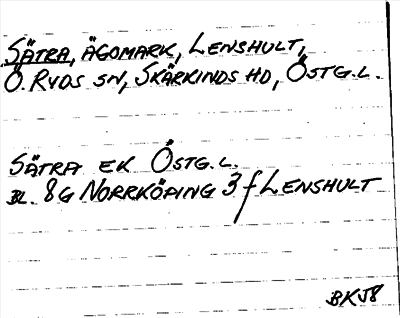 SÄTRA, ÄGOMARK, LENSHULT,
Ö. RYDS SN, SKÄRKINDS HD, ÖSTG.L.
SÄTRA EK ÖSTG.L.
BL. 8G NORRKÖPING 3f LENSHULT
BKJ8